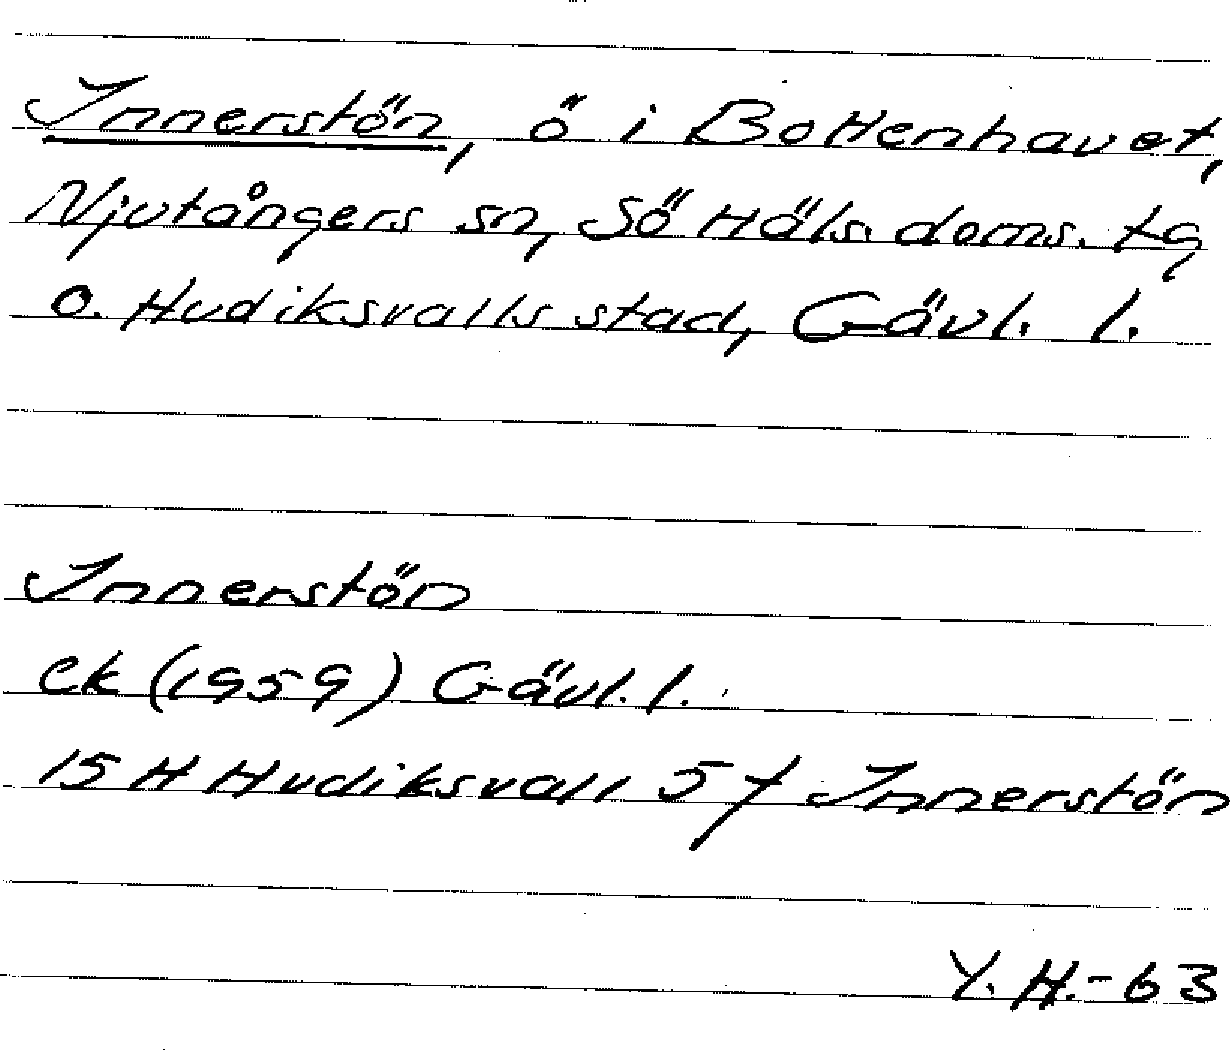 Innerstön, ö i Bottenhavet,
Njutångers sn, Sö Häls. doms. tg
o. Hudiksvalls stad, Gävl. l.
Innerstön
ek (1959) Gävl. l.
15 H Hudiksvall 5 f Innerstön
Y. H. - 63